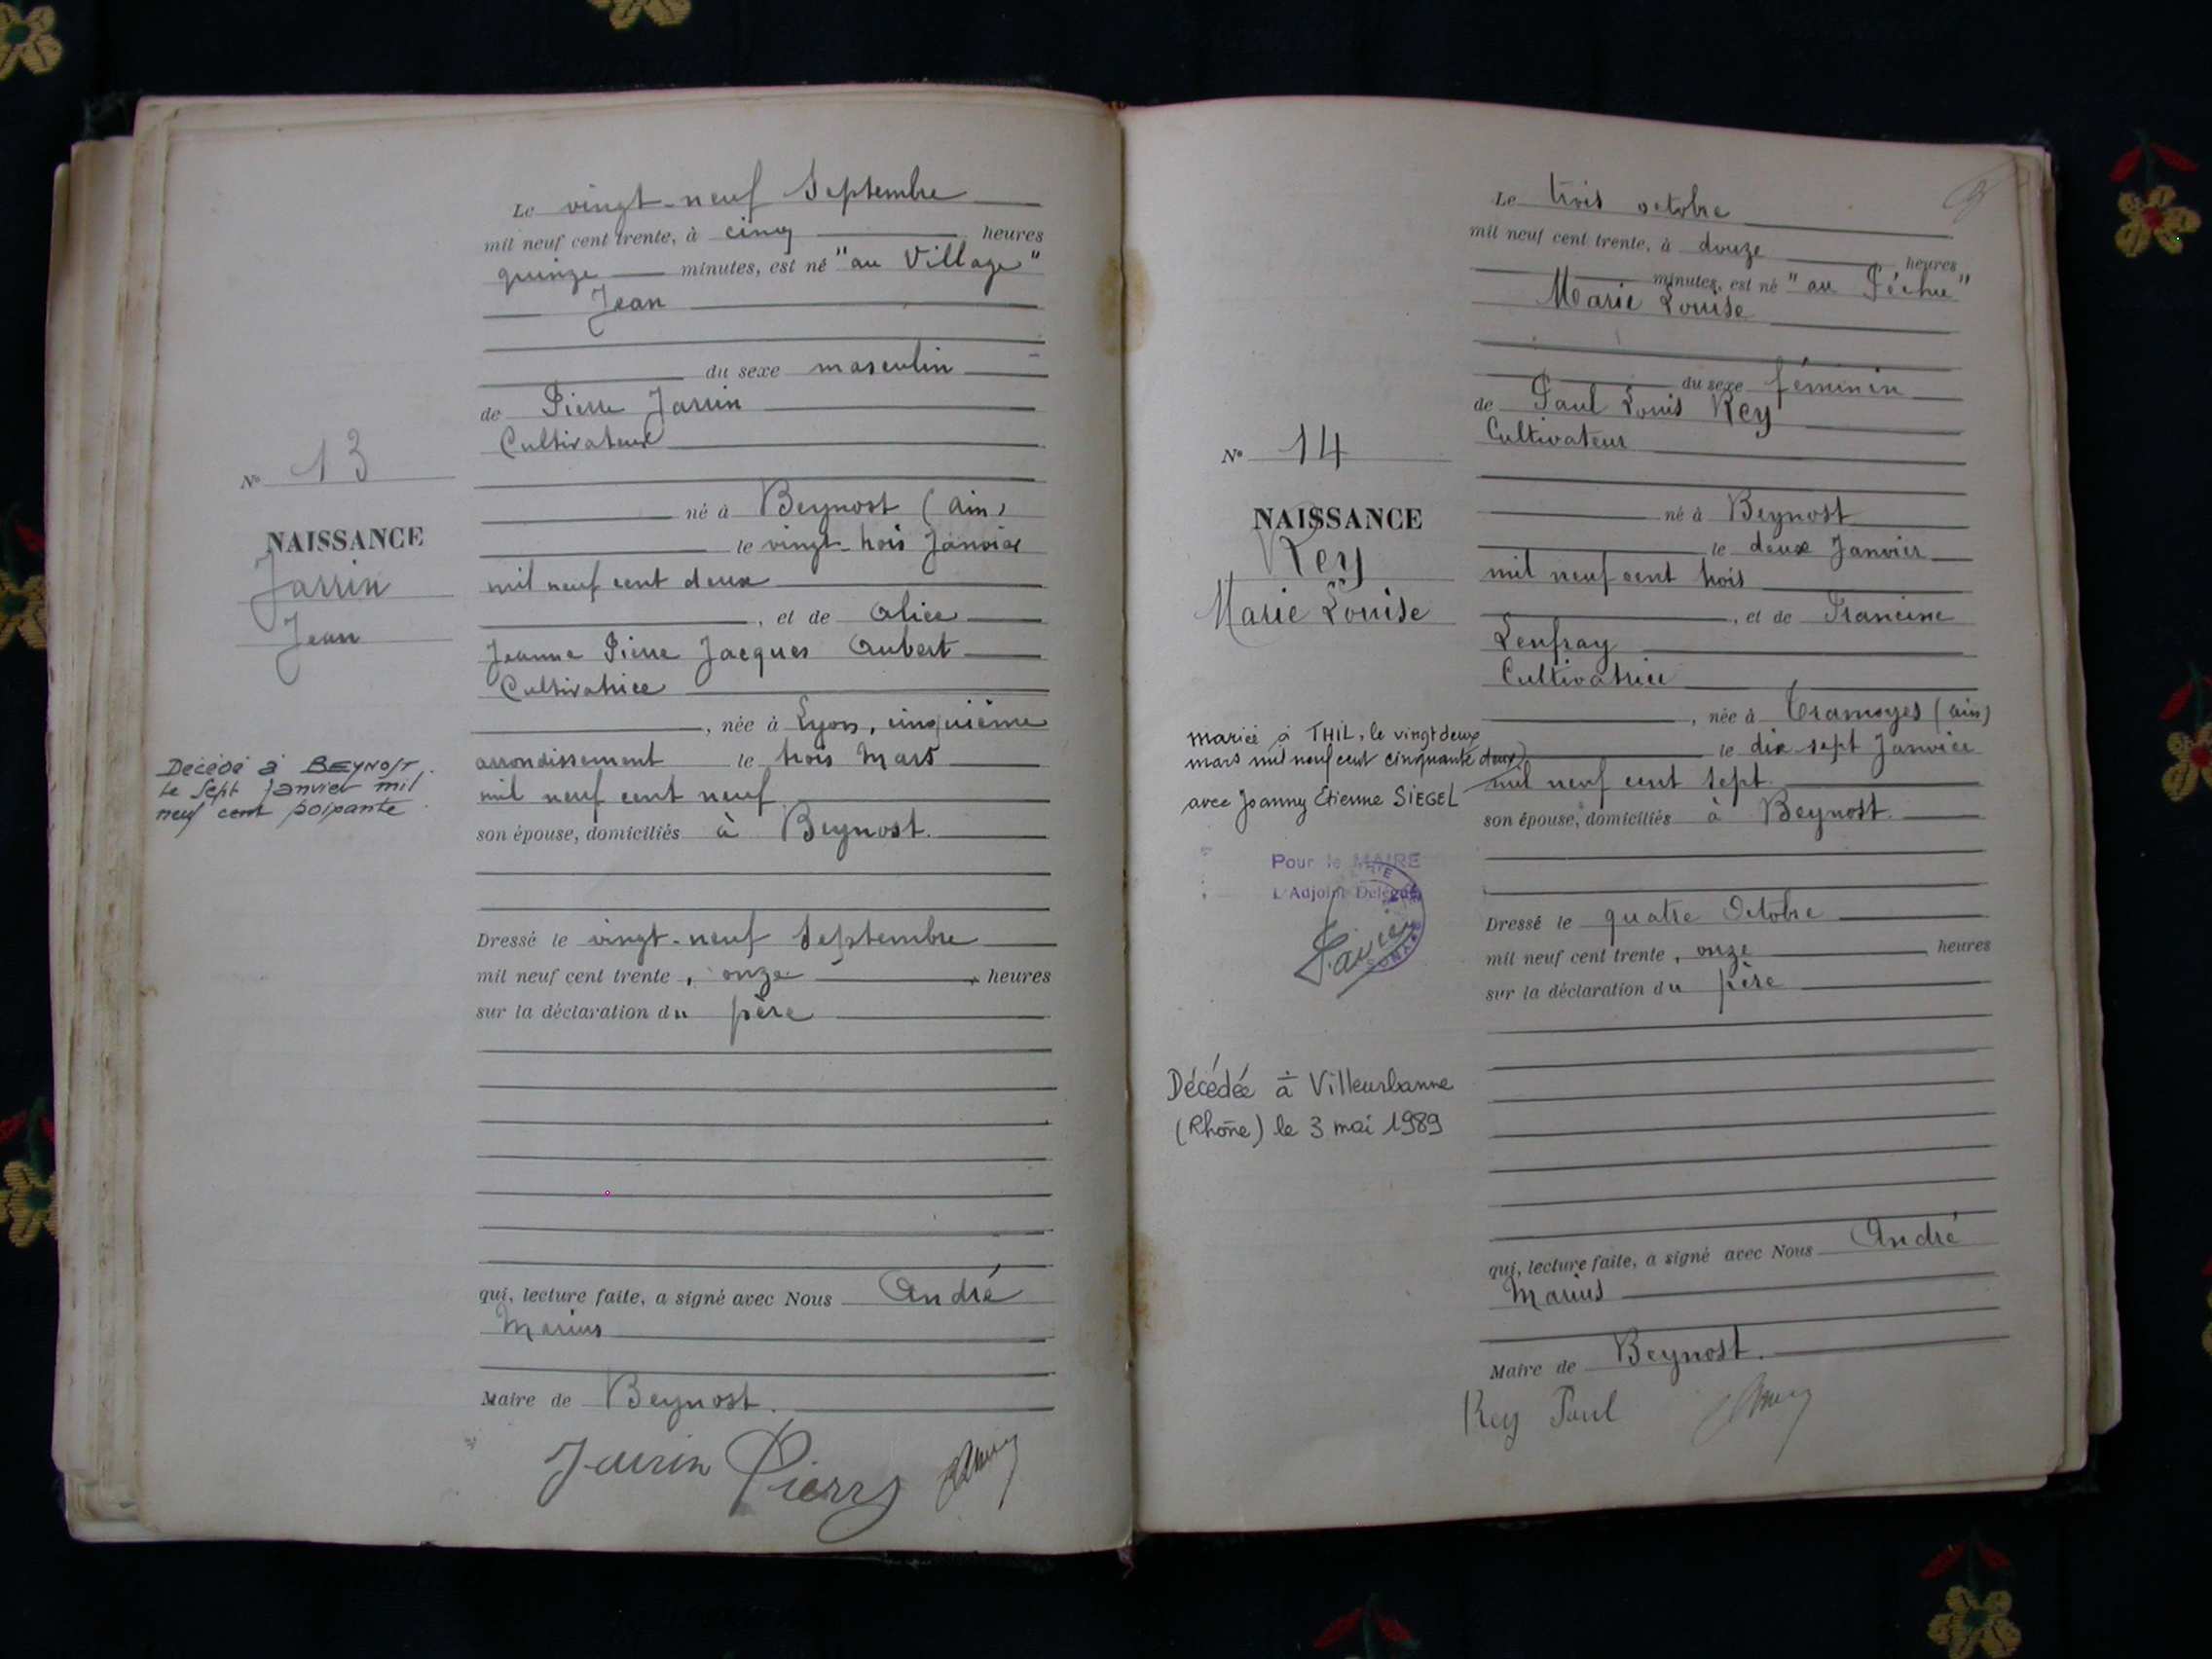 Le vingt-neuf Septembre
mil neuf cent trente, à cinq heures
quinze minutes, est né "au Village"
Jean
du sexe masculin
de Pierre Jarrin
Cultivateur
né à Beynost (Ain)
le vingt-trois Janvier
mil neuf cent deux
, et de Alice
Jeanne Pierre Jacques Aubert
Cultivatrice
, née à Lyon, cinquième
arrondissement le trois Mars
mil neuf cent neuf
son épouse, domiciliés à Beynost.
Dressé le vingt-neuf Septembre
mil neuf cent trente, onze heures
sur la déclaration du père
qui, lecture faite, a signé avec Nous André
Marius
Maire de Beynost.
Jarrin Pierre
No 13
NAISSANCE
Jarrin
Jean
Décédé à BEYNOST
le sept janvier mil
neuf cent soixante
Le trois octobre
mil neuf cent trente, à douze heures
minutes, est né "au Péchu"
Marie Louise
du sexe féminin
de Paul Louis Rey
Cultivateur
né à Beynost
le deux Janvier
mil neuf cent trois
, et de Francine
Cultivatrice
, née à Tramoyes (Ain)
le dix-sept Janvier
mil neuf cent sept.
son épouse, domiciliés à Beynost.
Dressé le quatre Octobre
mil neuf cent trente, onze heures
sur la déclaration du père
qui, lecture faite, a signé avec Nous André
Marius
Maire de Beynost.
Rey Paul
No 14
NAISSANCE
Rey
Marie Louise
mariée à THIL, le vingt deux
mars mil neuf cent cinquante deux
avec Joanny Etienne SIEGEL
Pour le MAIRE
L'Adjoint Délégué
Décédée à Villeurbanne
(Rhône) le 3 mai 1989